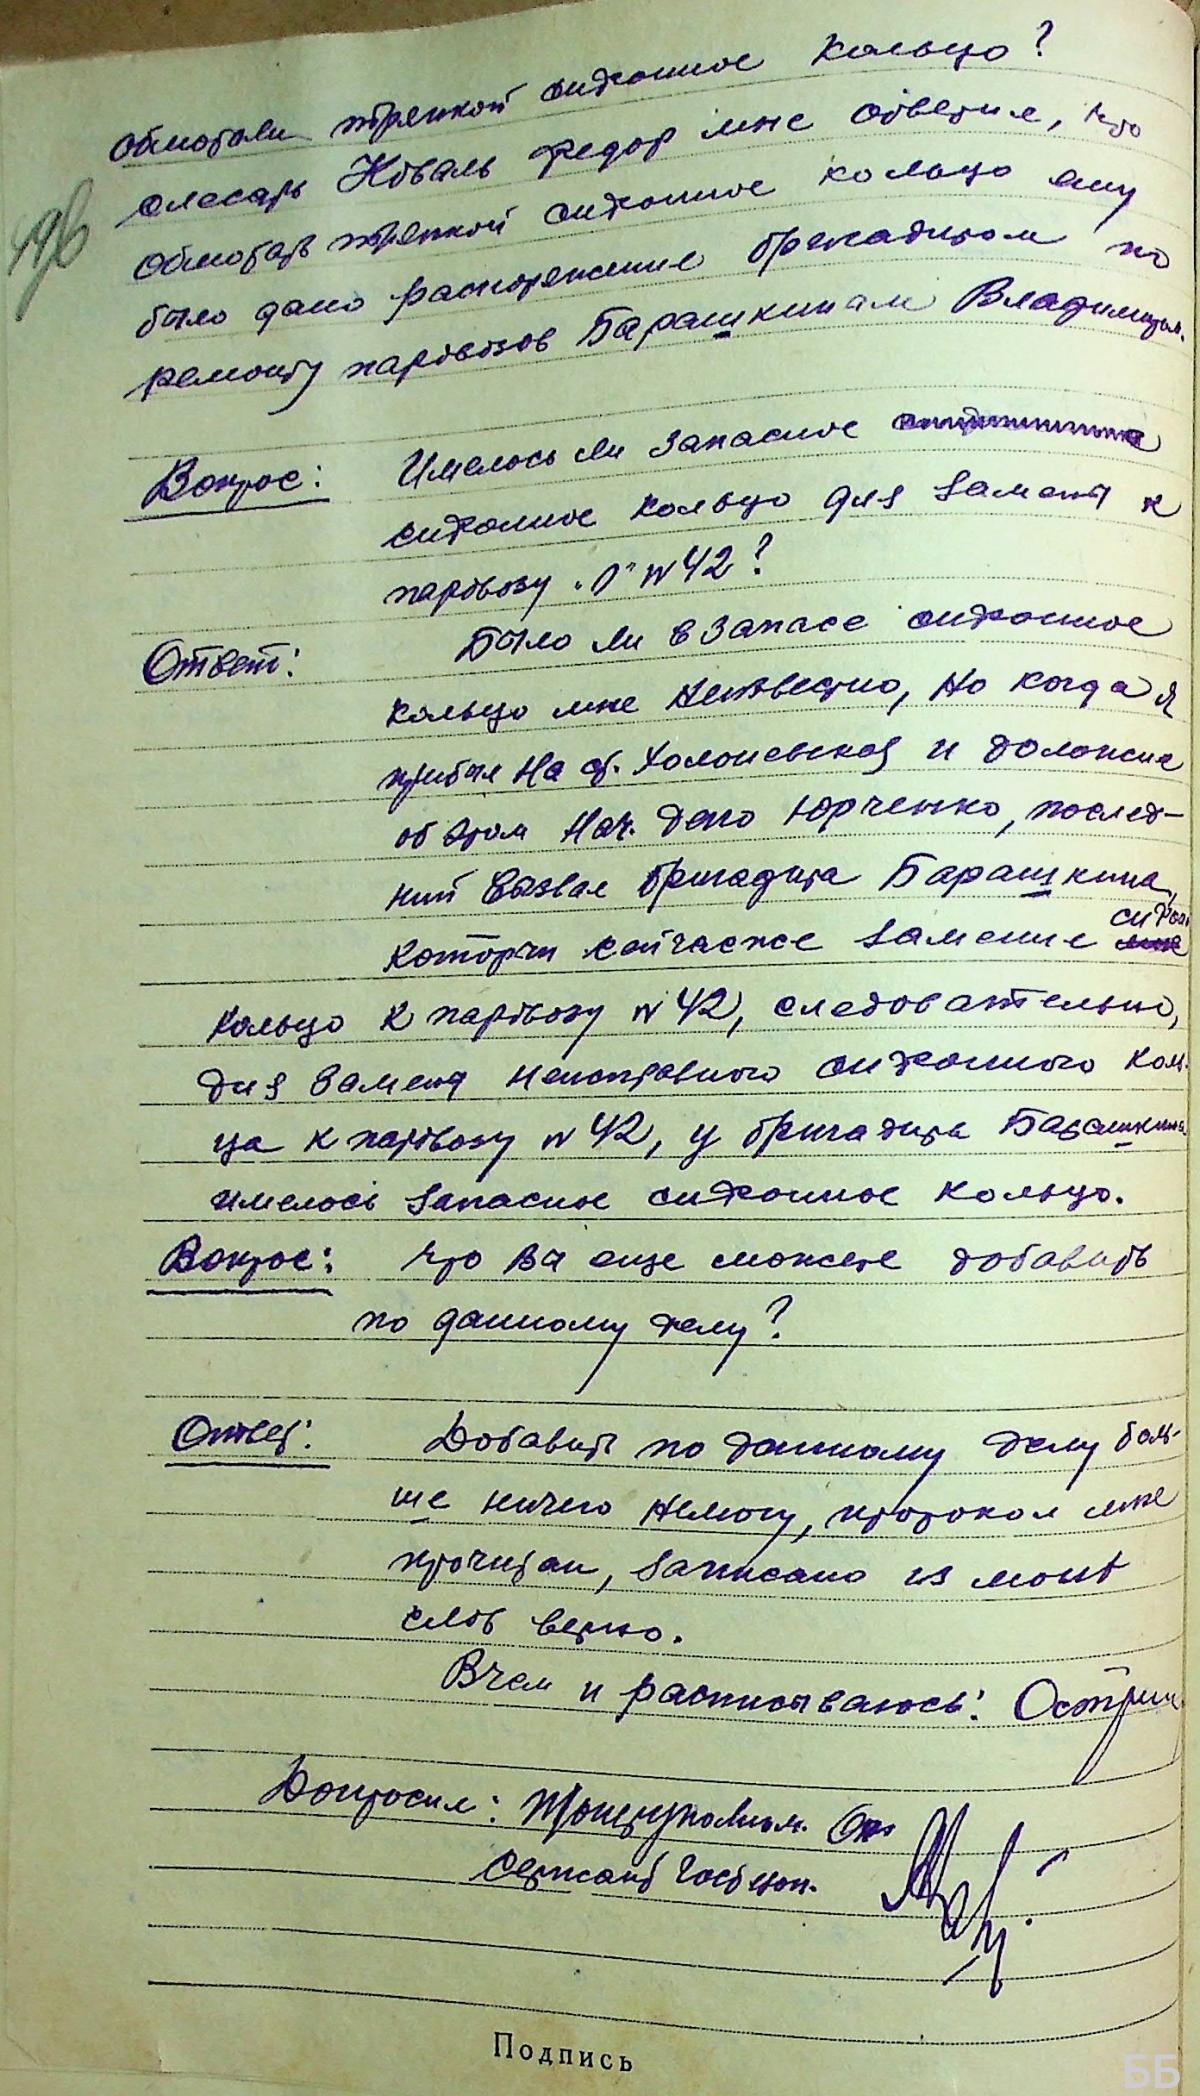 обмотали тряпкой сифонное кольцо?
слесарь Коваль Федор мне ответил, что
обмотать тряпкой сифонное кольцо ему
было дано распоряжение бригадиром по
ремонту паровозов Барашкинам Владимиром.
Вопрос: Имелось ли запасное
сифонное кольцо для замены к
паровозу "О" № 42?
Ответ: Было ли в запасе сифонное
кольцо мне неизвестно, но когда я
прибыл на ст. Холоневская и доложил
об этом нач. депо Юрченко, послед-
ний вызвал бригадира Барашкина,
которы сейчасже заменил сифон
кольцо к паровозу № 42, следовательно,
для замены неисправного сифонного коль-
ца к паровозу № 42, у бригадира Барашкина
имелось запасное сифонное кольцо.
Вопрос: Что Вы еще можете добавить
по данному делу?
Ответ: Добавить по данному делу боль-
ше ничего немогу, протокол мне
прочитан, записано из моих
слов верно.
В чем и расписываюсь:
Допросил:
Сержант Госбезоп.
Подпись
ББ